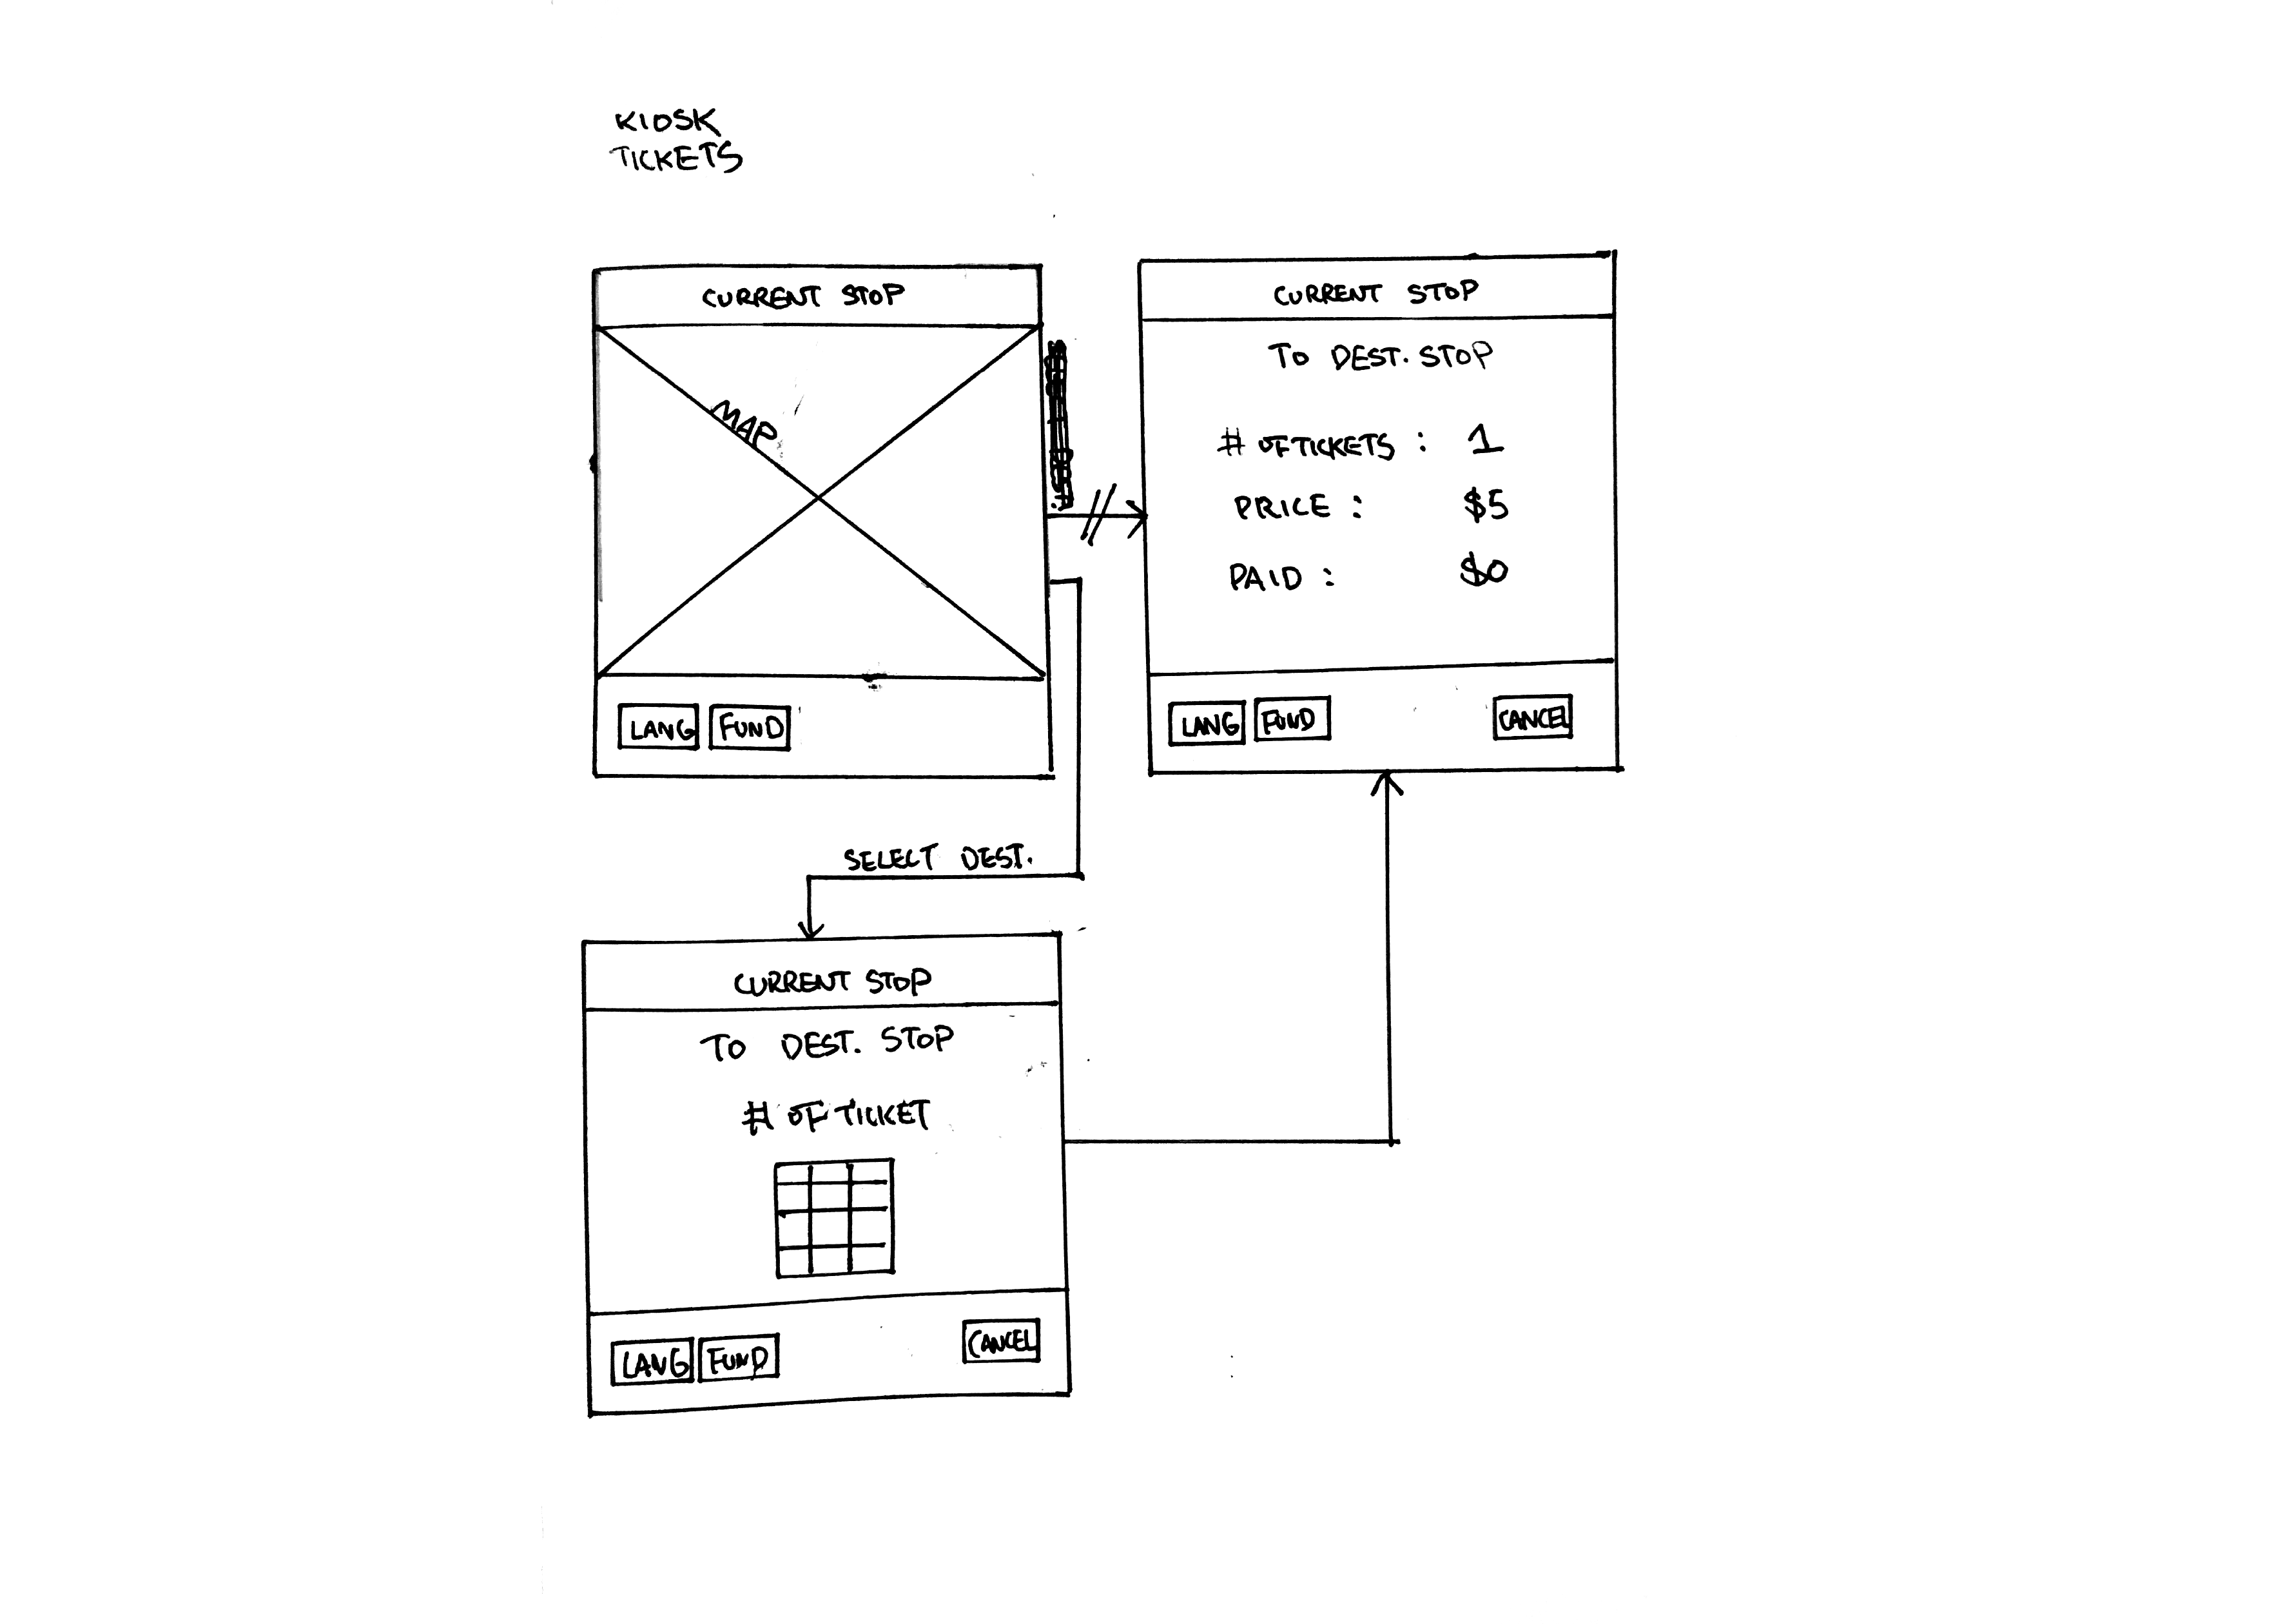 KIOSK
TICKETS
CURRENT STOP
MAP
LANG FUND
CURRENT STOP
TO DEST. STOP
# OF TICKETS : 1
PRICE : $5
PAID : $0
LANG FUND CANCEL
SELECT DEST.
CURRENT STOP
TO DEST. STOP
# OF TICKET
LANG FUND CANCEL